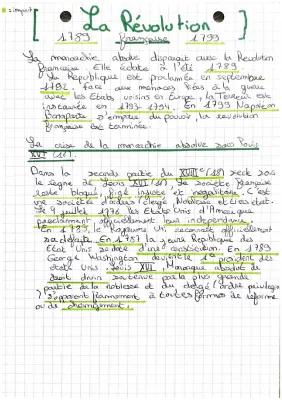 s'impact
[ La Révolution ]
1789 française 1799
La monarchie absolue disparait avec la Révolution
française. Elle éclate à l'été 1789
La République est proclamée en septembre
1792, face aux menaces liées à la guerre
avec les Etats voisins en Europe, la Terreur est
instaurée en 1793-1794. En 1799 Napoléon
Bonaparte s'empare du pouvoir, la révolution
française est terminée.
La crise de la monarchie absolue sous Louis
XVI (16).
Dans la seconde partie du XVIIIe (18) siècle sous
le règne de Louis XVI (16), la société française
reste bloquée, figée, injuste et inégalitaire. C'est
une société d'ordres, Clergé, Noblesse et tiers-état.
Le 4 juillet 1776 les Etats Unis d'Amérique
proclament officiellement leur indépendance.
En 1783, le Royaume Uni reconnait officiellement
sa défaite. En 1787 la jeune République des
Etat Unis se dote d'une constitution. En 1789
George Washington devient le 1er président des
états Unis. Louis XVI Monarque absolu de
droit divin soutenue par la plus grande
partie de la noblesse et du clergé (ordre privilégié)
s'opposent fermement à toutes formes de réforme
ou de changement.